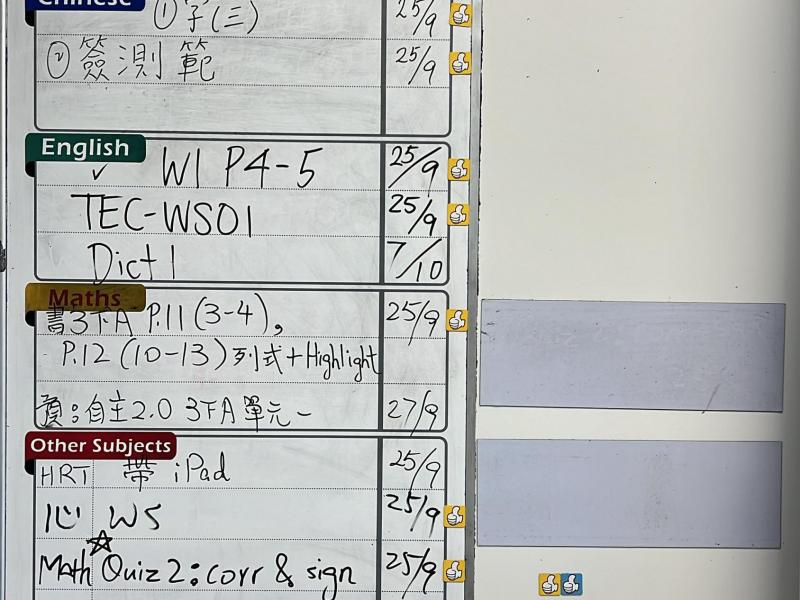 Chinese
① 字(三) 25/9
② 簽測範 25/9
English
✓ W1 P4-5 25/9
TEC-WS01 25/9
Dict 1 7/10
Maths
書3下A P.11 (3-4), 25/9
P.12 (10-13) 列式+Highlight
預:自主2.0 3下A單元一 27/9
Other Subjects
HRT 帶 iPad 25/9
心 WS 25/9
Math ☆ Quiz 2: corr & sign 25/9